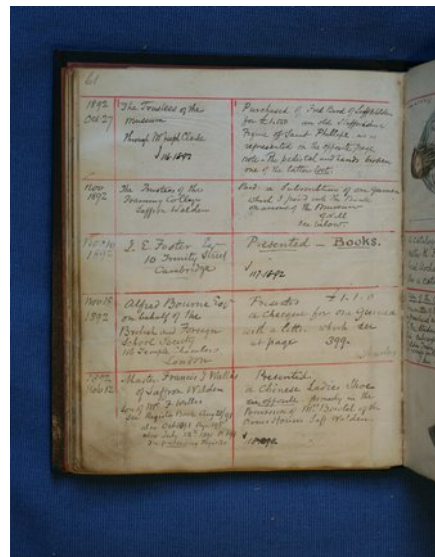 61
1892
Oct 27
The Trustees of the
Museum
Through Mr Joseph Clarke
116.1892
Purchased of Fred Bond of
for an old Staffordshire
Figure of Saint Phillip as is
represented in the opposite page
note - The pedestal and hands broken
one of the latter lost.
Nov
1892
The Trustees of the
Training College
Saffron Walden
Paid a Subscription of one Guinea
which I paid into the Bank
on account of the Museum
see below
Nov 10
1892
J. E. Foster Esq
10 Trinity Street
Cambridge
Presented - Books.
117.1892
Nov 18
1892
Alfred Bourne Esq
on behalf of the
British and Foreign
School Society
Temple Chambers
London
Presented £1.1.0
a cheque for one Guinea
with a letter which see
at page 399.
1892
Nov 12
Master Francis J Wallis
of Saffron Walden
Son of Mr J. Wallis
Presented
a Chinese Ladies Shoe
see opposite in the
Possession of Mr of the
Walden